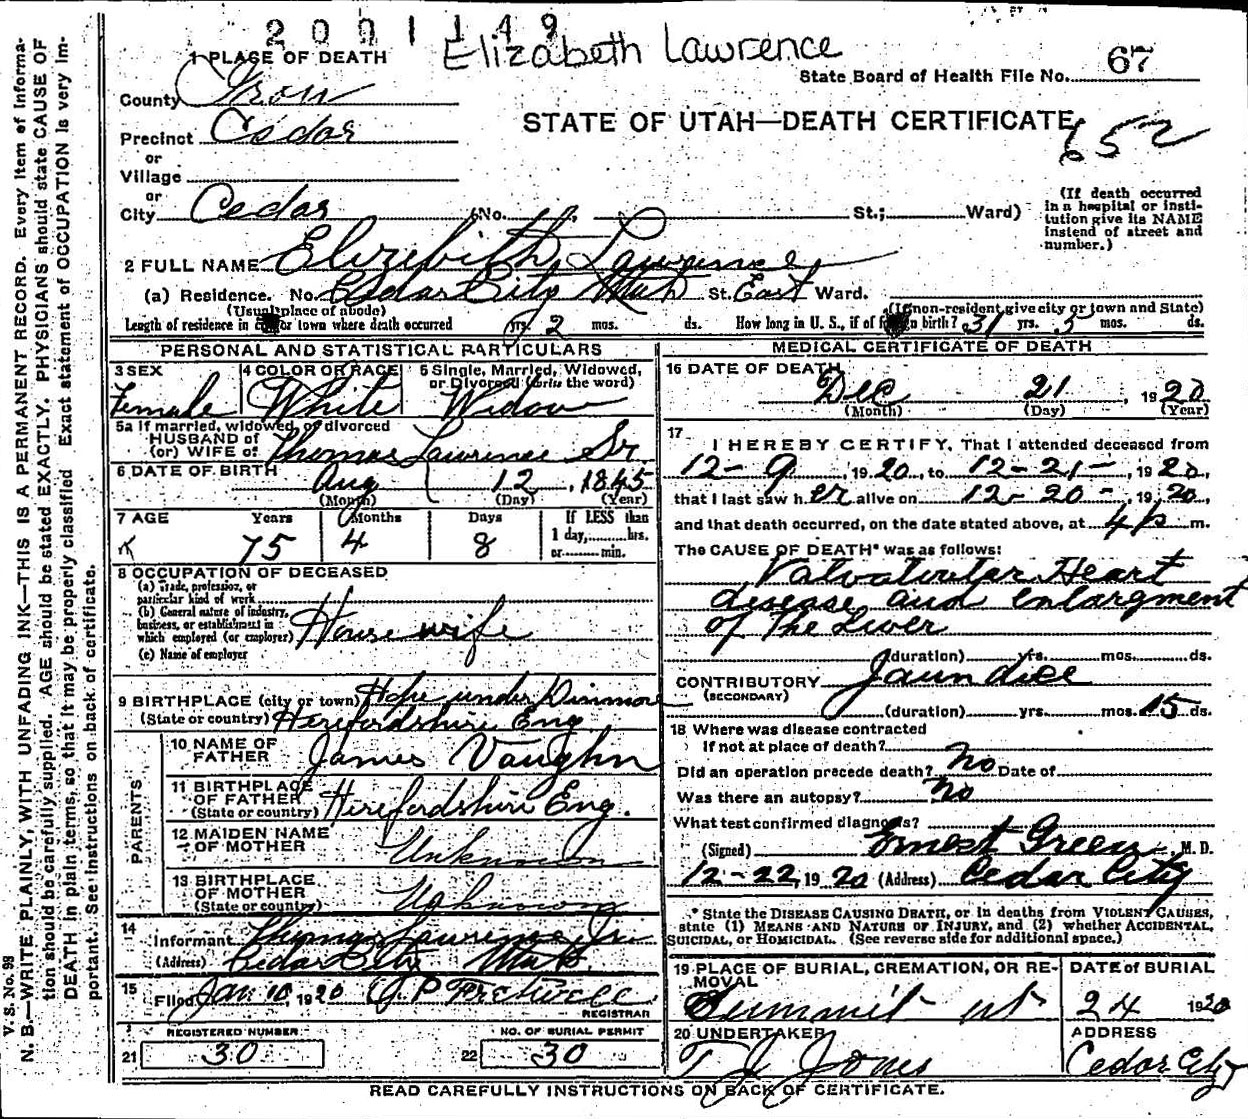 2001149
Elizabeth Lawrence
1 PLACE OF DEATH
State Board of Health File No. 67
County Iron
STATE OF UTAH—DEATH CERTIFICATE
652
Precinct Cedar
or
Village
or
City Cedar (No. St.; Ward)
(If death occurred
in a hospital or insti-
tution give its NAME
instead of street and
number.)
2 FULL NAME Elizebith Lawrence
(a) Residence. No. Cedar City Utah St. East Ward.
(Usual place of abode)
(If non-resident give city or town and State)
Length of residence in city or town where death occurred yrs. 2 mos. ds. How long in U. S., if of foreign birth? 31 yrs. 5 mos. ds.
PERSONAL AND STATISTICAL PARTICULARS
3 SEX
Female
4 COLOR OR RACE
White
5 Single, Married, Widowed,
or Divorced (write the word)
Widow
5a If married, widowed, or divorced
HUSBAND of
(or) WIFE of Thomas Lawrence Sr
6 DATE OF BIRTH
Aug 12, 1845
(Month) (Day) (Year)
7 AGE Years Months Days If LESS than
75 4 8 1 day, hrs.
or min.
8 OCCUPATION OF DECEASED
(a) Trade, profession, or
particular kind of work
(b) General nature of industry,
business, or establishment in
which employed (or employer) House wife
(c) Name of employer
9 BIRTHPLACE (city or town) Hope under Dinmore
(State or country) Herefordshire Eng
PARENTS
10 NAME OF
FATHER James Vaughn
11 BIRTHPLACE
OF FATHER
(State or country) Herefordshire Eng.
12 MAIDEN NAME
OF MOTHER Unknown
13 BIRTHPLACE
OF MOTHER
(State or country) Unknown
14
Informant Thomas Lawrence Jr.
(Address) Cedar City Utah.
15
Filed Jan 10, 1920
REGISTRAR
REGISTERED NUMBER
21 30
NO. OF BURIAL PERMIT
22 30
MEDICAL CERTIFICATE OF DEATH
16 DATE OF DEATH
Dec 21, 1920
(Month) (Day) (Year)
17
I HEREBY CERTIFY, That I attended deceased from
12-9, 1920, to 12-21-, 1920,
that I last saw her alive on 12-20-, 1920,
and that death occurred, on the date stated above, at 4 p m.
The CAUSE OF DEATH* was as follows:
Heart
disease and enlargment
of the Liver
(duration) yrs. mos. ds.
CONTRIBUTORY Jaundice
(SECONDARY)
(duration) yrs. mos. 15 ds.
18 Where was disease contracted
if not at place of death?
Did an operation precede death? No Date of
Was there an autopsy? No
What test confirmed diagnosis?
(Signed) Ernest Green, M. D.
12-22, 1920 (Address) Cedar City
* State the DISEASE CAUSING DEATH, or in deaths from VIOLENT CAUSES,
state (1) MEANS AND NATURE OF INJURY, and (2) whether ACCIDENTAL,
SUICIDAL, or HOMICIDAL. (See reverse side for additional space.)
19 PLACE OF BURIAL, CREMATION, OR RE-
MOVAL
Summit ut
DATE of BURIAL
24 1920
20 UNDERTAKER
T J Jones
ADDRESS
Cedar City
READ CAREFULLY INSTRUCTIONS ON BACK OF CERTIFICATE.
V. S. No. 98
N. B.—WRITE PLAINLY, WITH UNFADING INK—THIS IS A PERMANENT RECORD. Every item of informa-
tion should be carefully supplied. AGE should be stated EXACTLY. PHYSICIANS should state CAUSE OF
DEATH in plain terms, so that it may be properly classified. Exact statement of OCCUPATION is very im-
portant. See instructions on back of certificate.